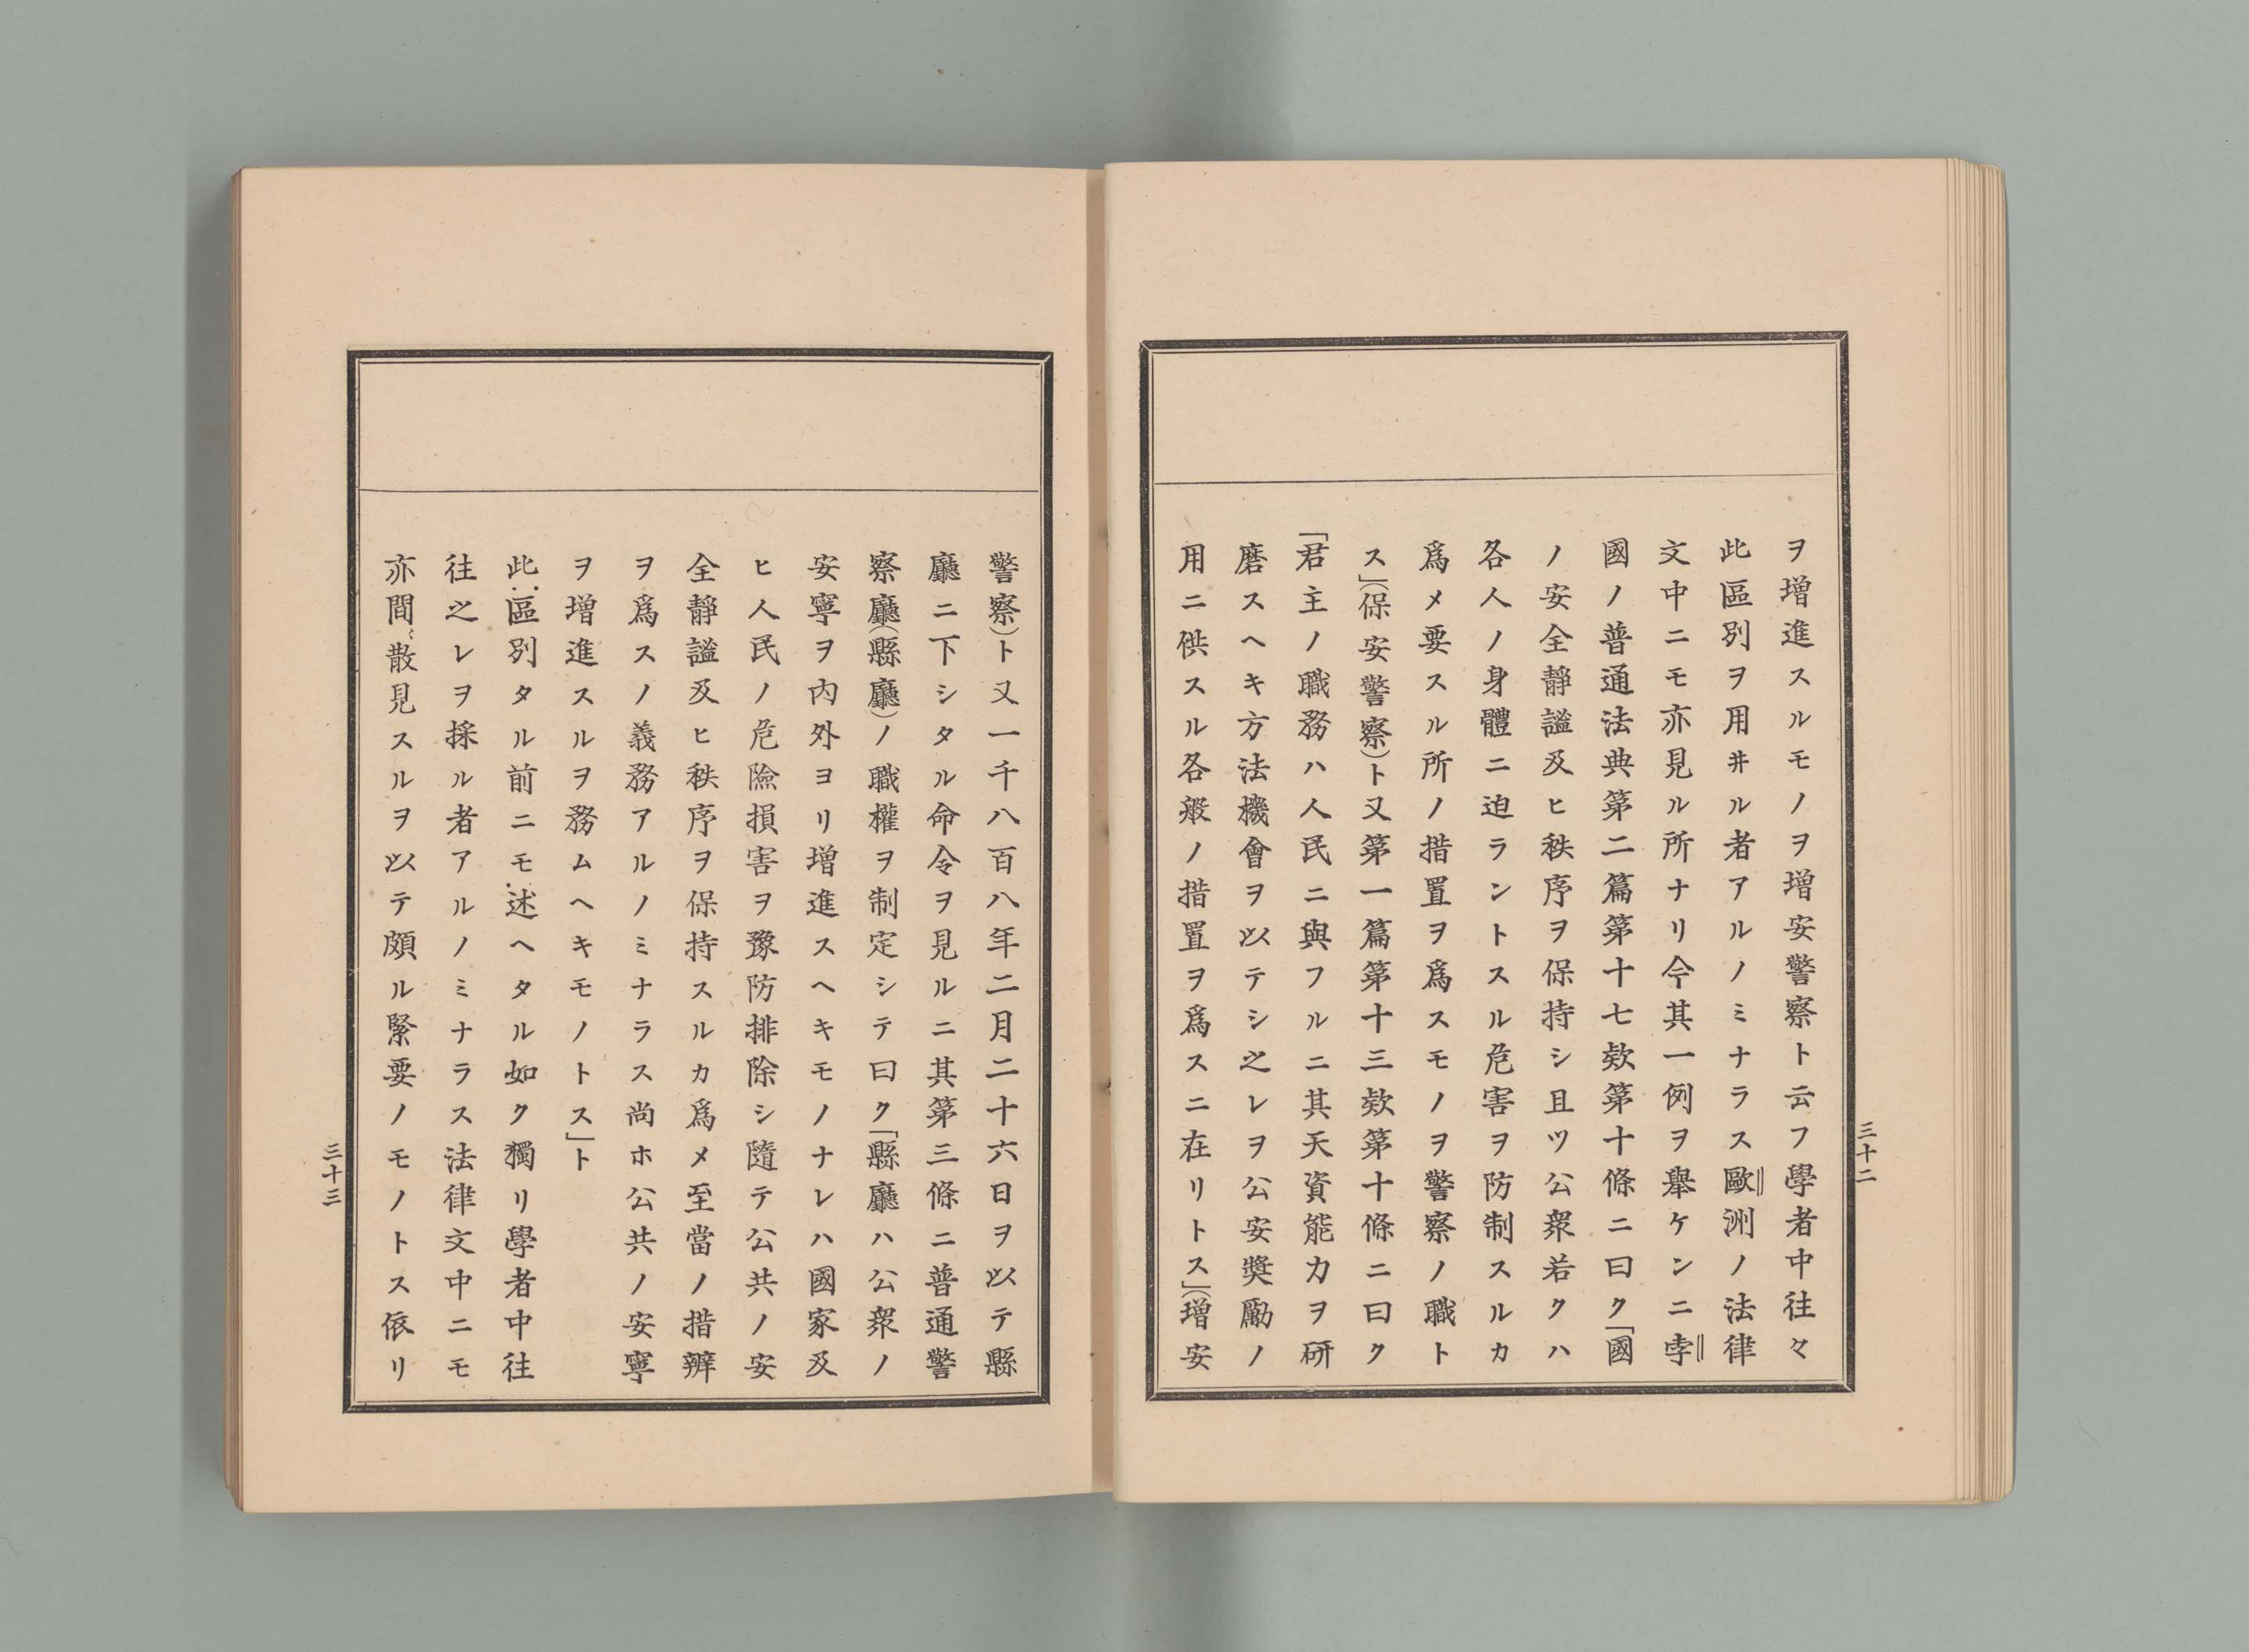 ヲ增進スルモノヲ增安警察ト云フ學者中往々
此區別ヲ用井ル者アルノミナラス歐洲ノ法律
文中ニモ亦見ル所ナリ今其一例ヲ舉ケンニ孛
國ノ普通法典第二篇第十七欵第十條ニ曰ク「國
ノ安全靜謐及ヒ秩序ヲ保持シ且ツ公衆若クハ
各人ノ身體ニ迫ラントスル危害ヲ防制スルカ
爲メ要スル所ノ措置ヲ爲スモノヲ警察ノ職ト
ス」(保安警察)ト又第一篇第十三欵第十條ニ曰ク
「君主ノ職務ハ人民ニ與フルニ其天資能力ヲ研
磨スヘキ方法機會ヲ以テシ之レヲ公安獎勵ノ
用ニ供スル各般ノ措置ヲ爲スニ在リトス」(增安
三十二
警察)ト又一千八百八年二月二十六日ヲ以テ縣
廳ニ下シタル命令ヲ見ルニ其第三條ニ普通警
察廳(縣廳)ノ職權ヲ制定シテ曰ク「縣廳ハ公衆ノ
安寧ヲ內外ヨリ增進スヘキモノナレハ國家及
ヒ人民ノ危險損害ヲ豫防排除シ隨テ公共ノ安
全靜謐及ヒ秩序ヲ保持スルカ爲メ至當ノ措辨
ヲ爲スノ義務アルノミナラス尚ホ公共ノ安寧
ヲ增進スルヲ務ムヘキモノトス」ト
此區別タル前ニモ述ヘタル如ク獨リ學者中往
往之レヲ採ル者アルノミナラス法律文中ニモ
亦間〻散見スルヲ以テ頗ル緊要ノモノトス依リ
三十三